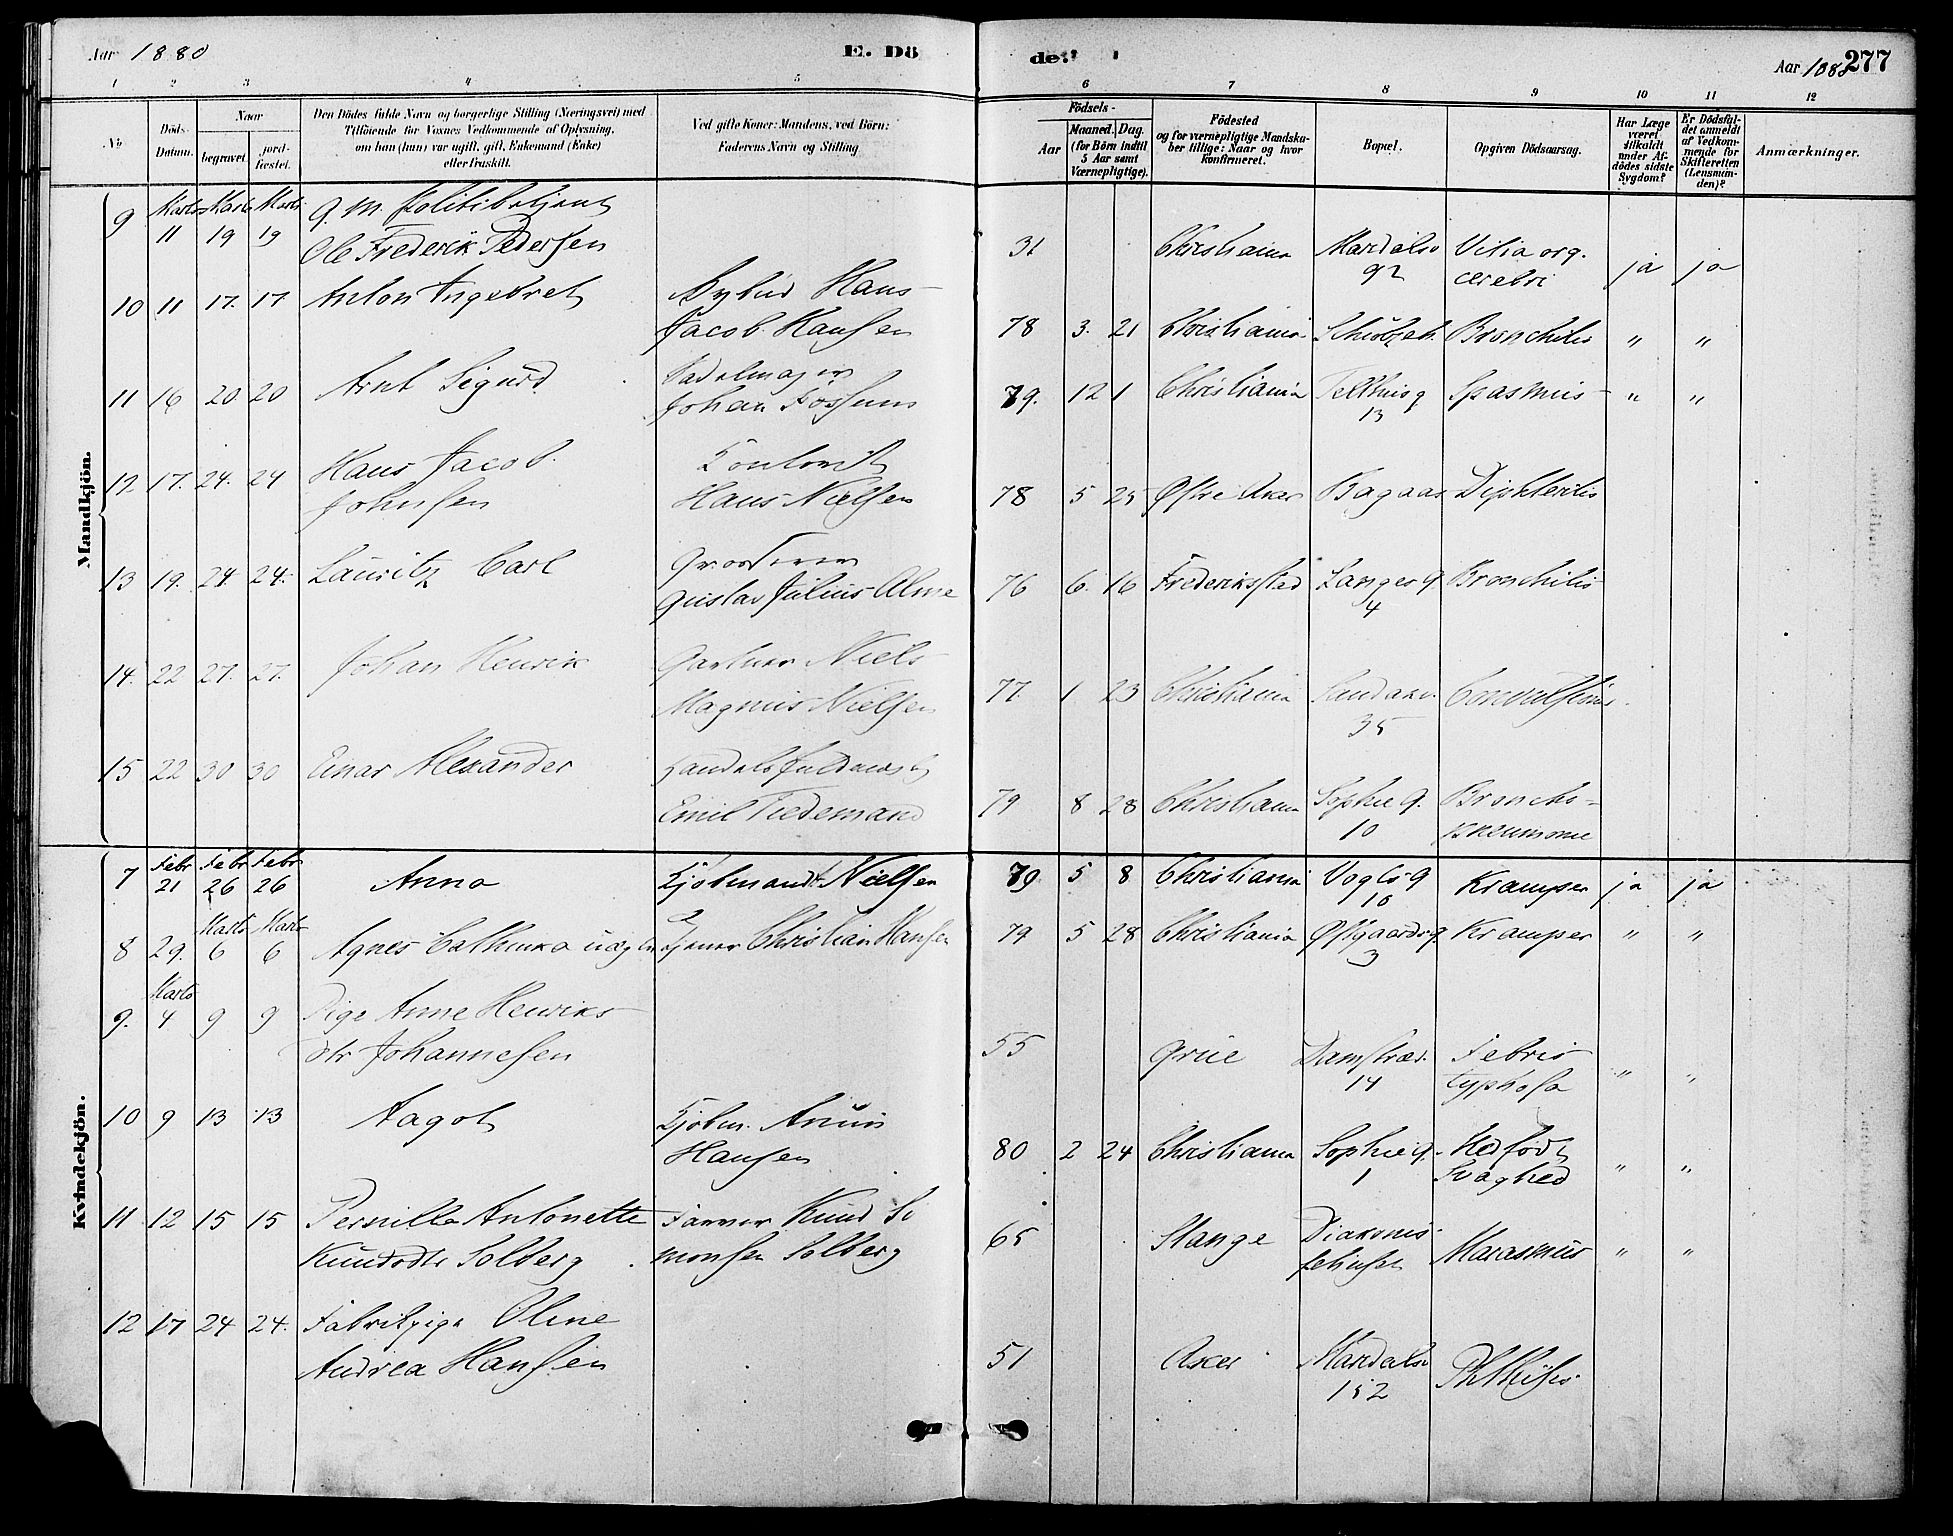 Aar 1880 E. Dö
de. Aar 1880 277
1 2 3 4 5 6 7 8 9 10 11 12
No. Döds-Datum. Naar begravet. jordfæstet. Den Dödes fulde Navn og borgerlige Stilling (Næringsvei) med Tilföiende for Voxnes Vedkommende af Oplysning, om han (hun) var ugift, gift, Enkemand (Enke) eller fraskilt. Ved gifte Koner: Mandens, ved Börn: Faderens Navn og Stilling
Födsels- Aar Maaned. Dag. (for Börn indtil 5 Aar samt Værnepligtige). Födested og for værnepligtige Mandskaber tillige: Naar og hvor konfirmeret. Bopæl. Opgiven Dödsaarsag. Har Læge været tilkaldt under Afdödes sidste Sygdom? Er Dödsfaldet anmeldt af Vedkommende for Skifteretten (Lensmanden)? Anmærkninger.
Mandkjön.
9 Marts 11 Marts 19 Marts 19 g. m. Politibetjent
Ole Frederik Pedersen 31 Christiania Maridalsv 92 Vitia org. cerebri ja ja
10 11 17. 17 Anton Ingebret Hans
Jacob Hansen 78 3. 21 Christiania Bronchitis " "
11 16 20. 20 Arnt Sigurd Sadelmager
Johan Fossum 79. 12 1 Christiania Telthusg 13 Spasmus " "
12. 17. 24. 24 Hans Jacob
Johnsen Hans Nielsen 78 5 25 Östre Aker Bagaas Diphteritis
13 19. 24. 24. Lauritz Carl
Gustav Julius Olme 76 6. 16 Frederiksstad Langes g. 4 Bronchitis
14. 22 27. 27. Johan Henrik Gartner Niels
Magnus Nielsen 77. 1 23 Christiania Sandakv. 35 Convulsiones.
15 22 30 30 Einar Alexander Handelsfuldmægt
Emil Tiedemand 79 8 28 Christiania Sophie g. 10 Broncho-
pneumonie
Kvindekjön.
7 Febr 21 Febr 26 Febr 26 Anna Kjöbmand Nielsen 79 5 8 Christiania Vogts g 10 Kramper ja ja
8 29. Marts 6 Marts 6 Agnes Cathinka uægte Christian Hansen 79 5 28 Christiania Östgaardsg. 3 Kramper " "
9. Marts 4 9 9 Pige Anne Henriks
dtr Johannesen 55 Grue Damstræd. 14 Febris
typhosa " "
10 9 13 13 Aagot Kjöbm. Anun
Hansen 80 2 24 Christiania Sophie g. 1 Medfödt
Svaghed " "
11 12 15 15 Pernille Antonette Farver Knud Si
Knudsdtr Solberg. monsen Solberg 65 Stange Diakonis-
sehuset Marasmus " "
12 17 24 24. Fabrikpige Oline
Andrea Hansen 51 Asker Maridalsv 152 Phthisis